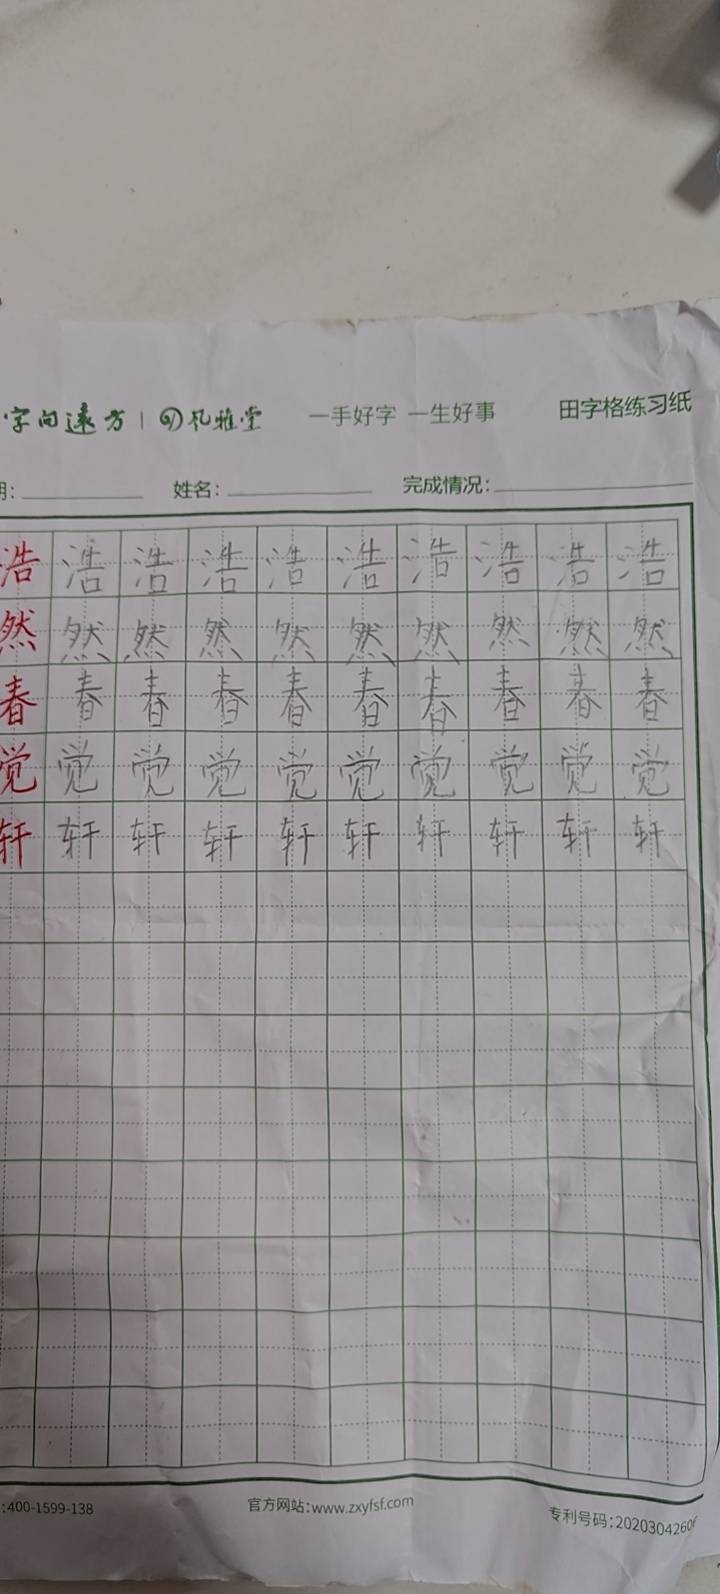 字向远方 | 风雅堂 一手好字 一生好事 田字格练习纸
期: 姓名: 完成情况:
浩 浩 浩 浩 浩 浩 浩 浩 浩 浩
然 然 然 然 然 然 然 然 然 然
春 春 春 春 春 春 春 春 春 春
觉 觉 觉 觉 觉 觉 觉 觉 觉 觉
轩 轩 轩 轩 轩 轩 轩 轩 轩 轩
:400-1599-138 官方网站:www.zxyfsf.com 专利号码:2020304260